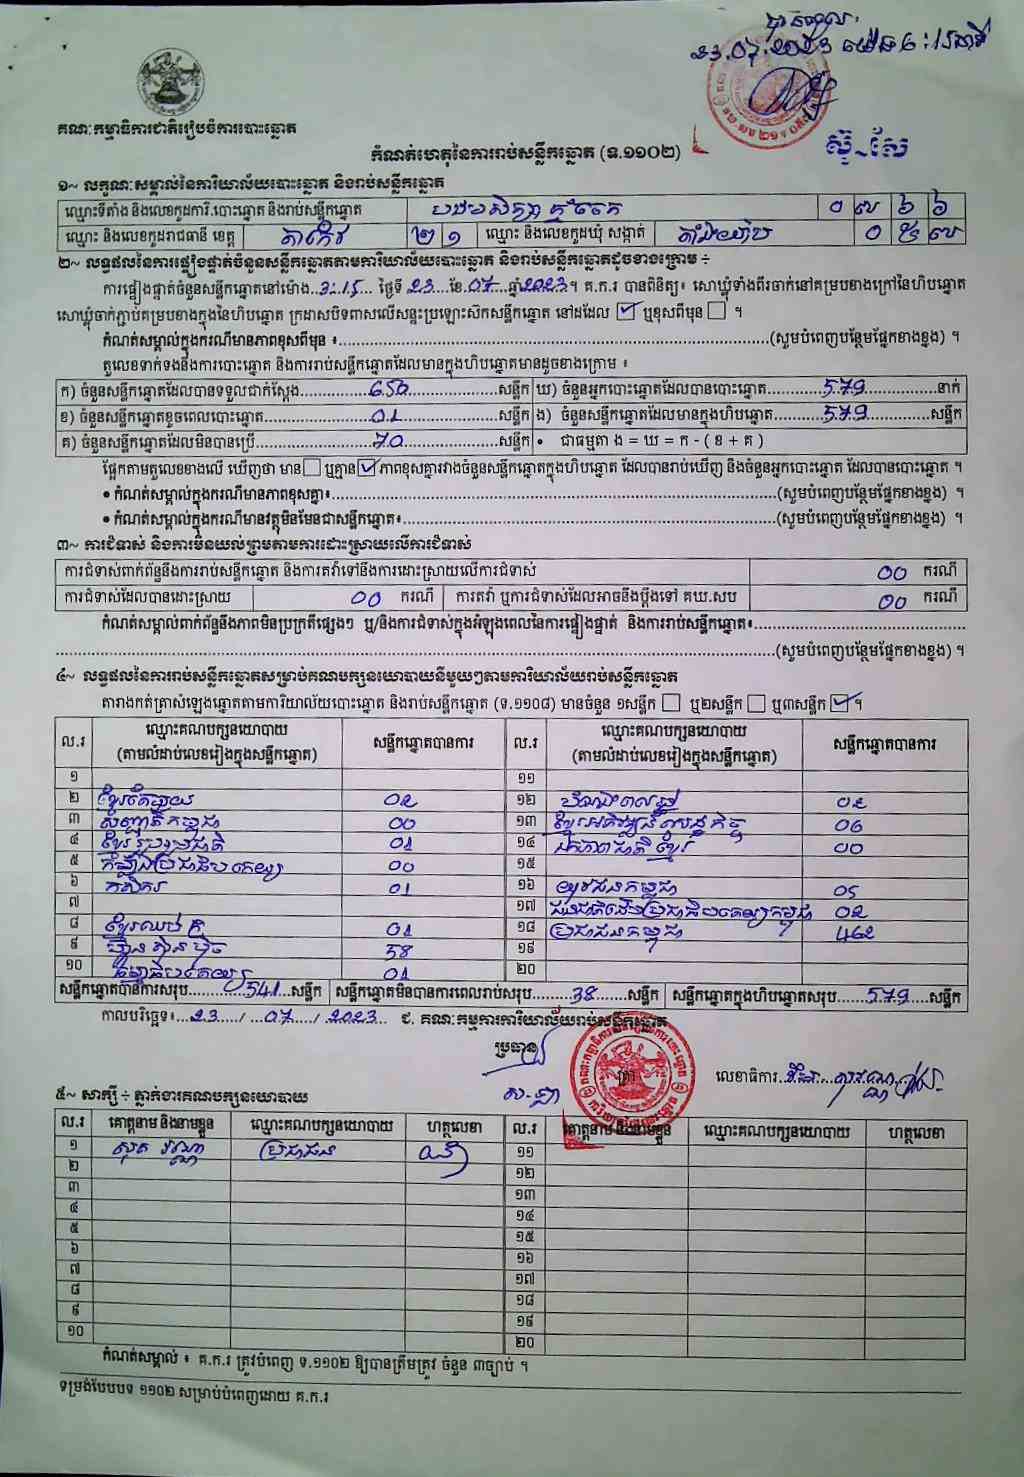 បានទទួល
គណៈកម្មាធិការជាតិរៀបចំការបោះឆ្នោត
កំណត់ហេតុនៃការរាប់សន្លឹកឆ្នោត (ទ.១១០២)
១~ លក្ខណៈសម្គាល់នៃការិយាល័យបោះឆ្នោត និងរាប់សន្លឹកឆ្នោត
ឈ្មោះទីតាំង និងលេខកូដការិ.បោះឆ្នោត និងរាប់សន្លឹកឆ្នោត ០ ៧ ៦ ៦
ឈ្មោះ និងលេខកូដរាជធានី ខេត្ត តាកែវ ២ ១ ឈ្មោះ និងលេខកូដឃុំ សង្កាត់
២~ លទ្ធផលនៃការផ្ទៀងផ្ទាត់ចំនួនសន្លឹកឆ្នោតតាមការិយាល័យបោះឆ្នោត និងរាប់សន្លឹកឆ្នោតដូចខាងក្រោម ÷
ការផ្ទៀងផ្ទាត់ចំនួនសន្លឹកឆ្នោតនៅម៉ោង..3:15... ថ្ងៃទី 23 ខែ 07 ឆ្នាំ 2023។ គ.ក.រ បានពិនិត្យ៖ សោឃ្លុំទាំងពីរចាក់នៅគម្របខាងក្រៅនៃហិបឆ្នោត
សោឃ្លុំចាក់ភ្ជាប់គម្របខាងក្នុងនៃហិបឆ្នោត ក្រដាសបិទពាសលើសន្ទះប្រឡោះស៊កសន្លឹកឆ្នោត នៅដដែល ☑ ឬខុសពីមុន ☐ ។
កំណត់សម្គាល់ក្នុងករណីមានភាពខុសពីមុន ៖.....(សូមបំពេញបន្ថែមផ្នែកខាងខ្នង) ។
តួលេខទាក់ទងនឹងការបោះឆ្នោត និងការរាប់សន្លឹកឆ្នោតដែលមានក្នុងហិបឆ្នោតមានដូចខាងក្រោម ៖
ក) ចំនួនសន្លឹកឆ្នោតដែលបានទទួលជាក់ស្តែង....650....សន្លឹក ឃ) ចំនួនអ្នកបោះឆ្នោតដែលបានបោះឆ្នោត....579....នាក់
ខ) ចំនួនសន្លឹកឆ្នោតខូចពេលបោះឆ្នោត....01....សន្លឹក ង) ចំនួនសន្លឹកឆ្នោតដែលមានក្នុងហិបឆ្នោត....579....សន្លឹក
គ) ចំនួនសន្លឹកឆ្នោតដែលមិនបានប្រើ....70....សន្លឹក • ជាធម្មតា ង = ឃ = ក - ( ខ + គ )
ផ្អែកតាមតួលេខខាងលើ ឃើញថា មាន ☐ ឬគ្មាន ☑ ភាពខុសគ្នារវាងចំនួនសន្លឹកឆ្នោតក្នុងហិបឆ្នោត ដែលបានរាប់ឃើញ និងចំនួនអ្នកបោះឆ្នោត ដែលបានបោះឆ្នោត ។
• កំណត់សម្គាល់ក្នុងករណីមានភាពខុសគ្នា៖.....(សូមបំពេញបន្ថែមផ្នែកខាងខ្នង) ។
• កំណត់សម្គាល់ក្នុងករណីមានវត្ថុមិនមែនជាសន្លឹកឆ្នោត៖.....(សូមបំពេញបន្ថែមផ្នែកខាងខ្នង) ។
៣~ ការជំទាស់ និងការមិនយល់ព្រមតាមការដោះស្រាយលើការជំទាស់
ការជំទាស់ពាក់ព័ន្ធនឹងការរាប់សន្លឹកឆ្នោត និងការតវ៉ាទៅនឹងការដោះស្រាយលើការជំទាស់ 00 ករណី
ការជំទាស់ដែលបានដោះស្រាយ 00 ករណី ការតវ៉ា ឬការជំទាស់ដែលអាចនឹងប្តឹងទៅ គឃ.សប 00 ករណី
កំណត់សម្គាល់ពាក់ព័ន្ធនឹងភាពមិនប្រក្រតីផ្សេងៗ ឬ/និងការជំទាស់ក្នុងអំឡុងពេលនៃការផ្ទៀងផ្ទាត់ និងការរាប់សន្លឹកឆ្នោត៖.....
.....(សូមបំពេញបន្ថែមផ្នែកខាងខ្នង) ។
៤~ លទ្ធផលនៃការរាប់សន្លឹកឆ្នោតសម្រាប់គណបក្សនយោបាយនីមួយៗតាមការិយាល័យរាប់សន្លឹកឆ្នោត
តារាងកត់ត្រាសំឡេងឆ្នោតតាមការិយាល័យបោះឆ្នោត និងរាប់សន្លឹកឆ្នោត (ទ.១១០៨) មានចំនួន ១សន្លឹក ☐ ឬ២សន្លឹក ☐ ឬ៣សន្លឹក ☑ ។
ល.រ ឈ្មោះគណបក្សនយោបាយ សន្លឹកឆ្នោតបានការ ល.រ ឈ្មោះគណបក្សនយោបាយ សន្លឹកឆ្នោតបានការ
(តាមលំដាប់លេខរៀងក្នុងសន្លឹកឆ្នោត) (តាមលំដាប់លេខរៀងក្នុងសន្លឹកឆ្នោត)
១ ១១
២ 02 ១២ 02
៣ សញ្ជាតិកម្ពុជា 00 ១៣ ខ្មែរអភិវឌ្ឍន៍សេដ្ឋកិច្ច 06
៤ ខ្មែររួបរួមជាតិ 01 ១៤ ឯកភាពជាតិខ្មែរ 00
៥ កម្លាំងប្រជាធិបតេយ្យ 00 ១៥
៦ កសិករ 01 ១៦ យុវជនកម្ពុជា 05
៧ ១៧ ជនជាតិដើមប្រជាធិបតេយ្យកម្ពុជា 02
៨ ខ្មែរឈប់ក្រ 01 ១៨ ប្រជាជនកម្ពុជា 462
៩ ហ៊្វុនស៊ិនប៉ិច 58 ១៩
១០ ធម្មាធិបតេយ្យ 01 ២០
សន្លឹកឆ្នោតបានការសរុប....541....សន្លឹក សន្លឹកឆ្នោតមិនបានការពេលរាប់សរុប....38....សន្លឹក សន្លឹកឆ្នោតក្នុងហិបឆ្នោតសរុប....579....សន្លឹក
កាលបរិច្ឆេទ៖...23..../...07..../ 2023... ជ. គណៈកម្មការការិយាល័យរាប់សន្លឹកឆ្នោត
ប្រធាន
លេខាធិការ
៥~ សាក្សី ÷ ភ្នាក់ងារគណបក្សនយោបាយ
ល.រ គោត្តនាម និងនាមខ្លួន ឈ្មោះគណបក្សនយោបាយ ហត្ថលេខា ល.រ គោត្តនាម និងនាមខ្លួន ឈ្មោះគណបក្សនយោបាយ ហត្ថលេខា
១ ប្រជាជន ១១
២ ១២
៣ ១៣
៤ ១៤
៥ ១៥
៦ ១៦
៧ ១៧
៨ ១៨
៩ ១៩
១០ ២០
កំណត់សម្គាល់ ៖ គ.ក.រ ត្រូវបំពេញ ទ.១១០២ ឱ្យបានត្រឹមត្រូវ ចំនួន ៣ច្បាប់ ។
ទម្រង់បែបបទ ១១០២ សម្រាប់បំពេញដោយ គ.ក.រ